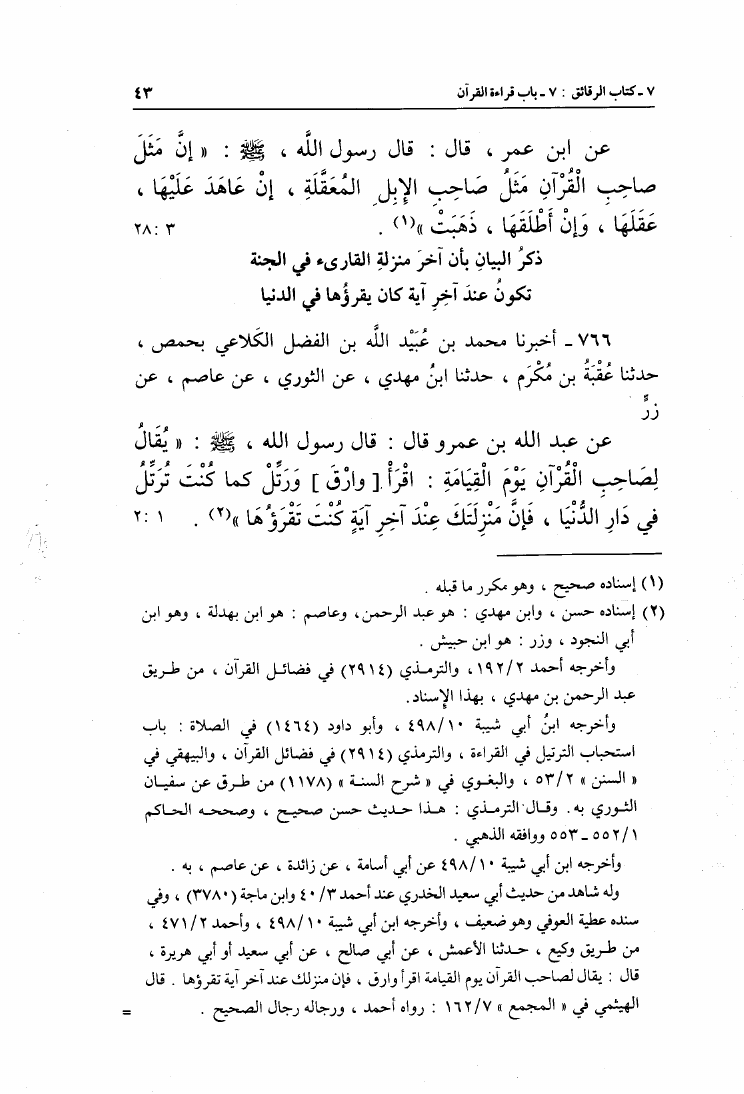 ٧ - كتاب الرقائق : ٧ - باب قراءة القرآن ٤٣
عن ابن عمر ، قال : قال رسول اللَّه ، ﷺ : « إنَّ مَثَلَ
صاحِبِ الْقُرْآنِ مَثَلُ صَاحِبِ الإِبِلِ المُعَقَّلَةِ ، إنْ عَاهَدَ عَلَيْهَا ،
عَقَلَهَا ، وَإنْ أَطْلَقَهَا ، ذَهَبَتْ »(١) . ٣ :٢٨
ذكرُ البيانِ بأن آخرَ منزلةِ القارىء في الجنة
تكونُ عندَ آخِرِ آية كان يقرؤُها في الدنيا
٧٦٦ - أخبرنا محمد بن عُبَيْد اللَّه بن الفضل الكَلاعي بحمص ،
حدثنا عُقْبَةُ بن مُكْرَم ، حدثنا ابنُ مهدي ، عن الثوري ، عن عاصم ، عن
زرٍّ
عن عبد الله بن عمرو قال : قال رسول الله ، ﷺ : « يُقَالُ
لِصَاحِبِ الْقُرْآنِ يَوْمَ الْقِيَامَةِ : اقْرَأْ [ وارْقَ ] وَرَتِّلْ كما كُنْتَ تُرَتِّلُ
في دَارِ الدُّنْيَا ، فَإِنَّ مَنْزِلَتَكَ عِنْدَ آخِرِ آيَةٍ كُنْتَ تَقْرَؤُهَا »(٢) . ١ :٢
(١) إسناده صحيح ، وهو مكرر ما قبله .
(٢) إسناده حسن ، وابن مهدي : هو عبد الرحمن، وعاصم : هو ابن بهدلة ، وهو ابن
أبي النجود ، وزر : هو ابن حبيش .
وأخرجه أحمد ١٩٢/٢، والترمذي (٢٩١٤) في فضائل القرآن ، من طريق
عبد الرحمن بن مهدي ، بهذا الإسناد.
وأخرجه ابنُ أبي شيبة ٤٩٨/١٠ ، وأبو داود (١٤٦٤) في الصلاة : باب
استحباب الترتيل في القراءة ، والترمذي (٢٩١٤) في فضائل القرآن ، والبيهقي في
« السنن » ٥٣/٢ ، والبغوي في « شرح السنة » (١١٧٨) من طرق عن سفيان
الثوري به. وقال الترمذي : هذا حديث حسن صحيح ، وصححه الحاكم
٥٥٢/١ - ٥٥٣ ووافقه الذهبي .
وأخرجه ابن أبي شيبة ٤٩٨/١٠ عن أبي أسامة ، عن زائدة ، عن عاصم ، به .
وله شاهد من حديث أبي سعيد الخدري عند أحمد ٤٠/٣ وابن ماجة (٣٧٨٠) ، وفي
سنده عطية العوفي وهو ضعيف ، وأخرجه ابن أبي شيبة ٤٩٨/١٠ ، وأحمد ٤٧١/٢ ،
من طريق وكيع ، حدثنا الأعمش ، عن أبي صالح ، عن أبي سعيد أو أبي هريرة ،
قال : يقال لصاحب القرآن يوم القيامة اقرأ وارق ، فإن منزلك عند آخر آية تقرؤها . قال
الهيثمي في « المجمع » ١٦٢/٧ : رواه أحمد ، ورجاله رجال الصحيح . =